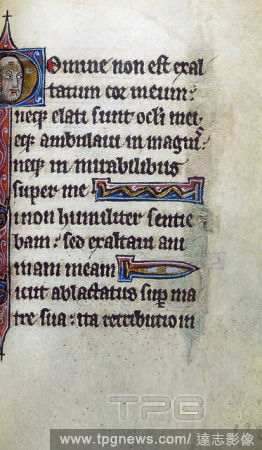 Domine non est exal
tatum cor meum:
neqz elati sunt oculi mei
eqz ambulaui in magnis
neqz in mirabilibus
super me
Si non humiliter sentie
bam: sed exaltaui ani
mam meam
Sicut ablactatus super ma
tre sua: ita retributio in
TPG
www.tpgnews.com/達志影像